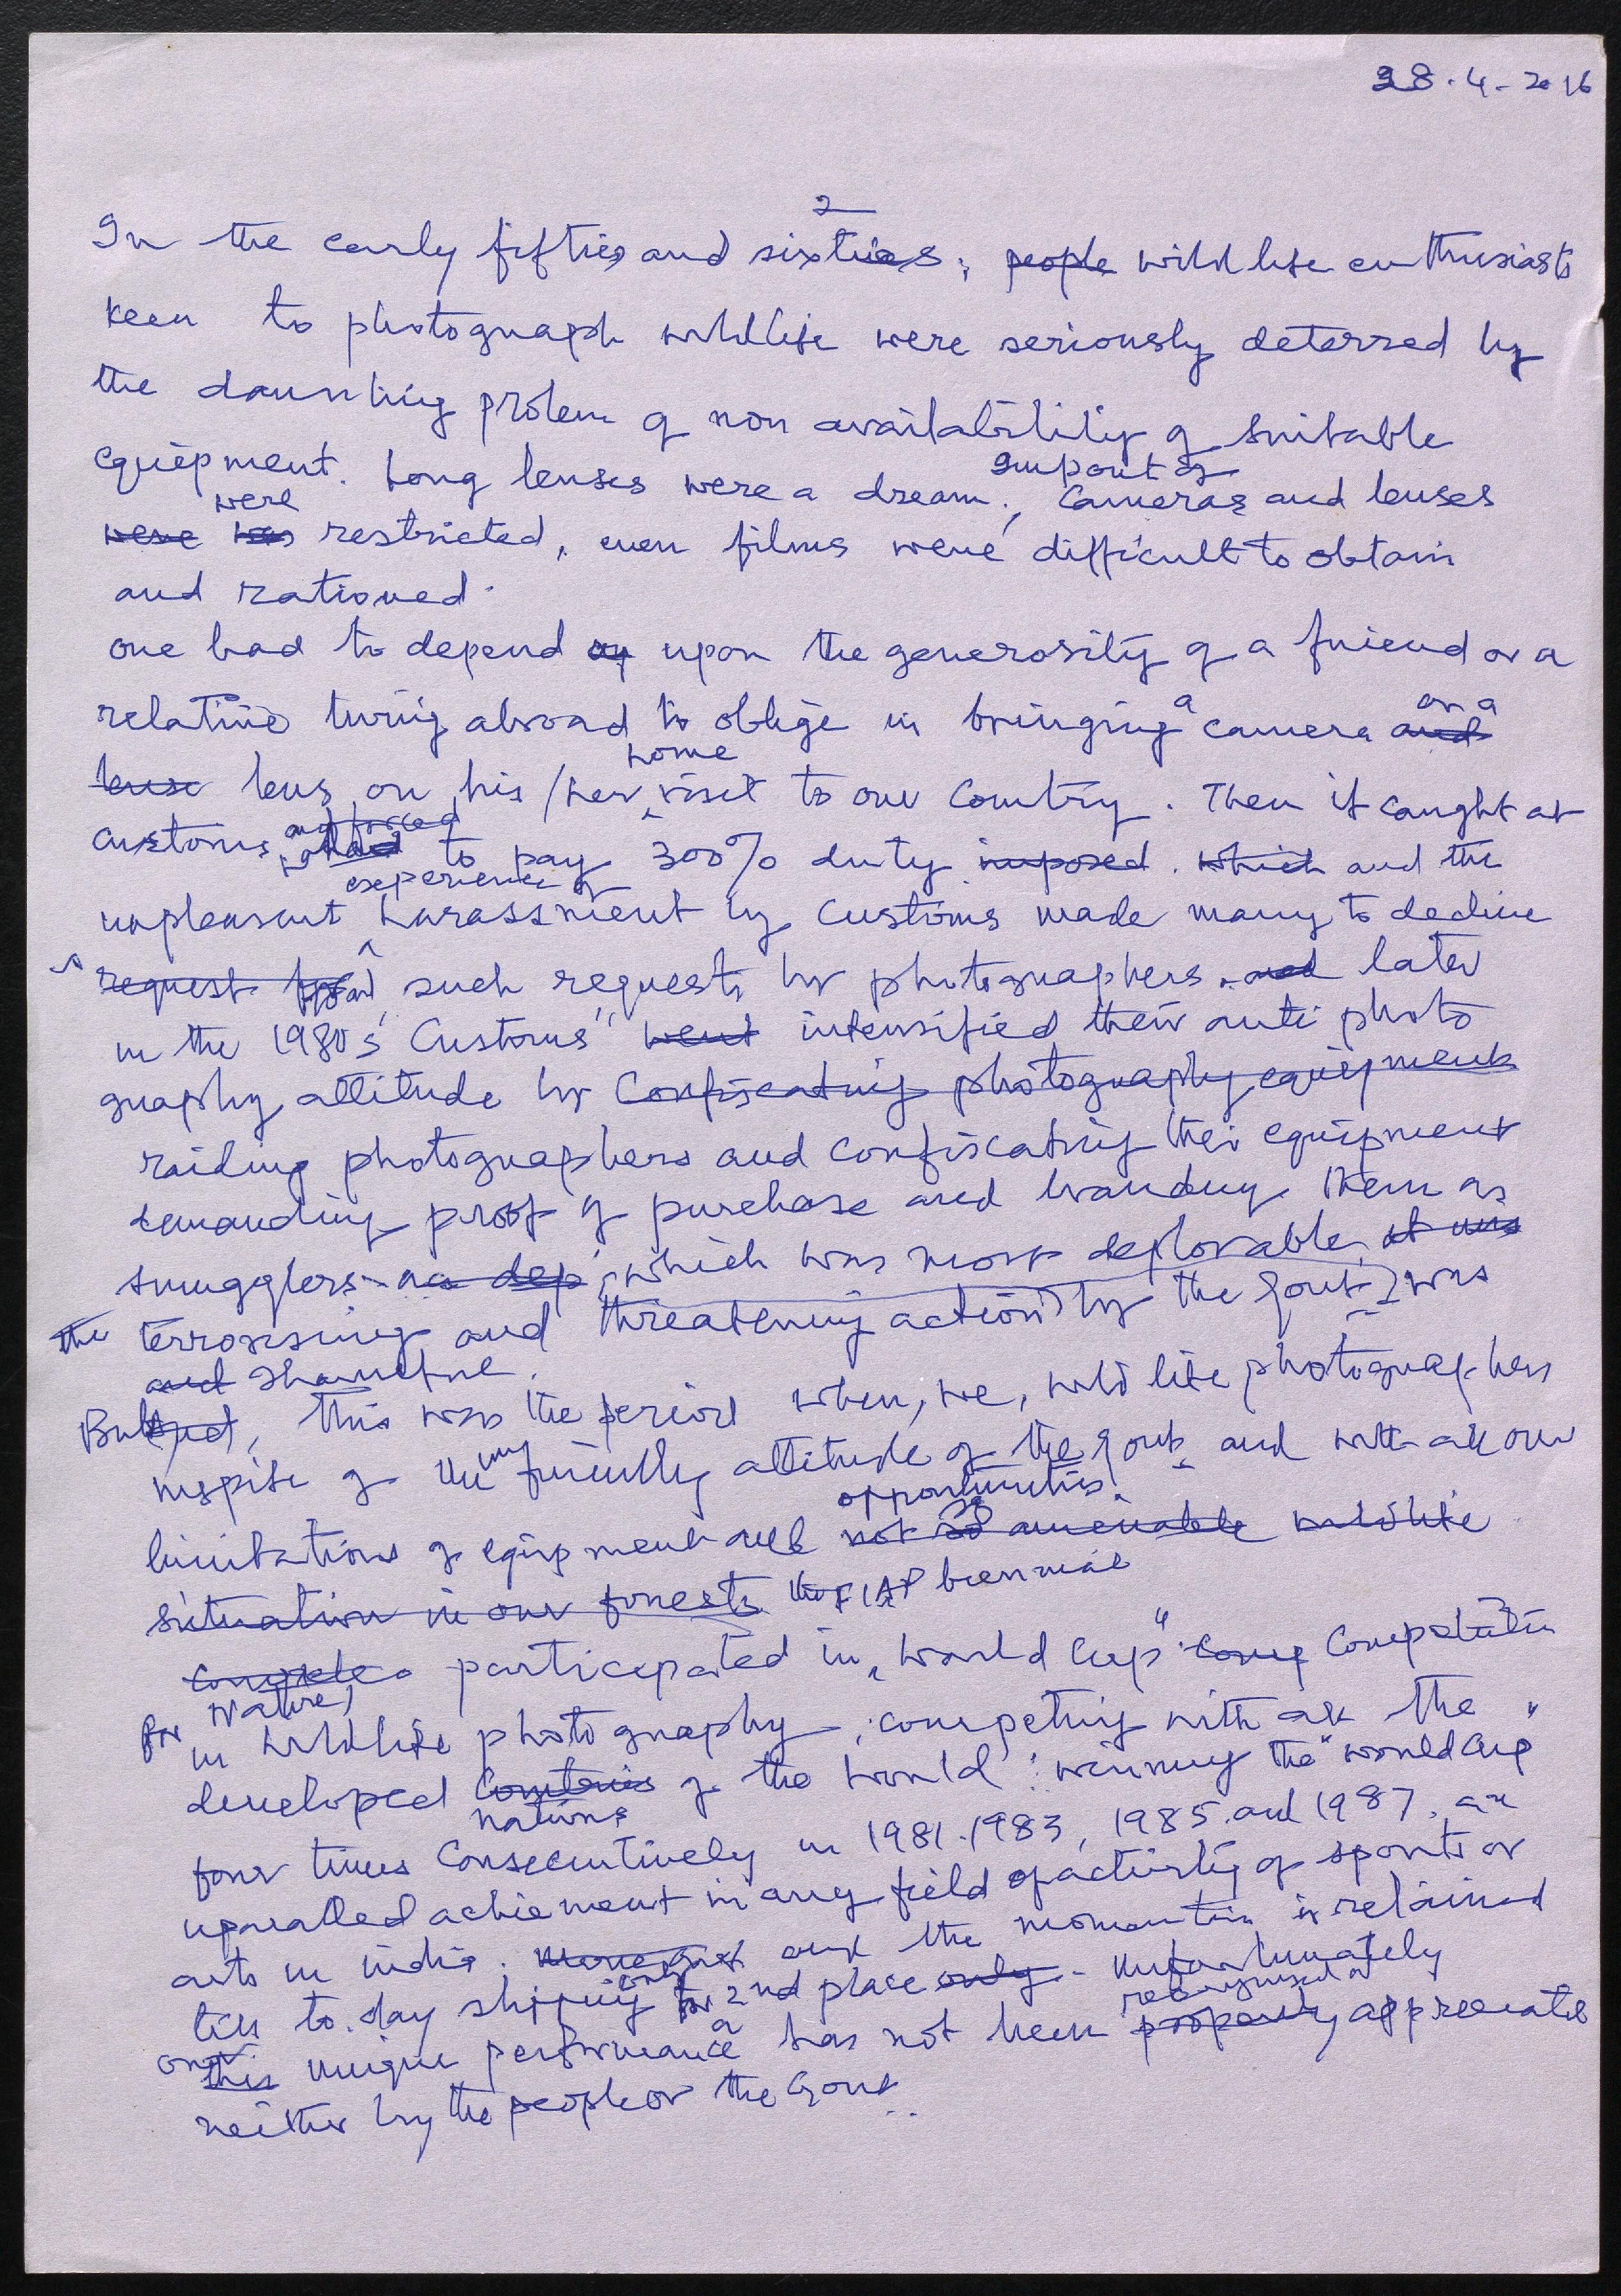 28.4-2016
2
In the early fifties and sixties, people wild life enthusiasts
keen to photograph wildlife were seriously deterred by
the daunting prolem of non availability of suitable
equipment. Long lenses were a dream., Import of Cameras and lenses
were has were restricted, even films were difficult to obtain
and rationed.
one had to depend up upon the generosity of a friend or a
relative turing abroad to oblige in bringing a camera and or a
lense lens on his/her home visit to our Country. Then if caught at
Customs and forced to pay 300% duty imposed. which and the
unpleasant experience of harassment by Customs made many to decline
request for such requests by photographers. and later
in the 1980s "Customs" went intensified their anti photo
graphy attitude by Confiscating photography equipments
raiding photographers and confiscating their equipment
demanding proof of purchase and branding them as
smugglers as dep, which was most deplorable. it was
the terrorising and threatening action by the Govt. was
and shameful.
But And, this was the period when, we, wild life photographers
inspite of the unfriendly attitude of the Govt. and with all our
limitations of equipment and opportunities. not so amenable wildlife
situation in our forests the FIAP biennial
Complete participated in "World Cup" Comp Competition
for Nature,
in Wildlife photography, competing with all the
developed Countries nations of the world: winning the "World Cup"
four times Consecutively in 1981.1983, 1985.and 1987. an
unparalled achievement in any field of activity of sports or
arts in india. and the momentum is retained
till to.day slipping only to 2nd place only. Unfortunately
our this unique performance has not been recognised or properly appreciated
neither by the people or the Govt..